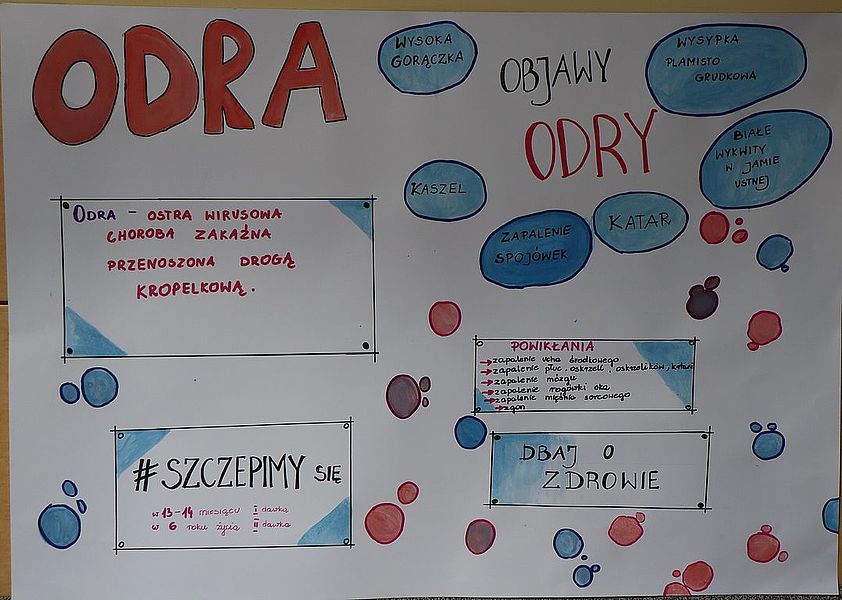 ODRA
ODRA – OSTRA WIRUSOWA
CHOROBA ZAKAŹNA
PRZENOSZONA DROGĄ
KROPELKOWĄ.
#SZCZEPIMY SIĘ
w 13-14 miesiącu I dawka
w 6 roku życia II dawka
OBJAWY
ODRY
WYSOKA
GORĄCZKA
WYSYPKA
PLAMISTO
GRUDKOWA
BIAŁE
WYKWITY
W JAMIE
USTNEJ
KASZEL
KATAR
ZAPALENIE
SPOJÓWEK
POWIKŁANIA
→ zapalenie ucha środkowego
→ zapalenie płuc, oskrzeli, oskrzelików, krtani
→ zapalenie mózgu
→ zapalenie rogówki oka
→ zapalenie mięśnia sercowego
→ zgon
DBAJ O
ZDROWIE